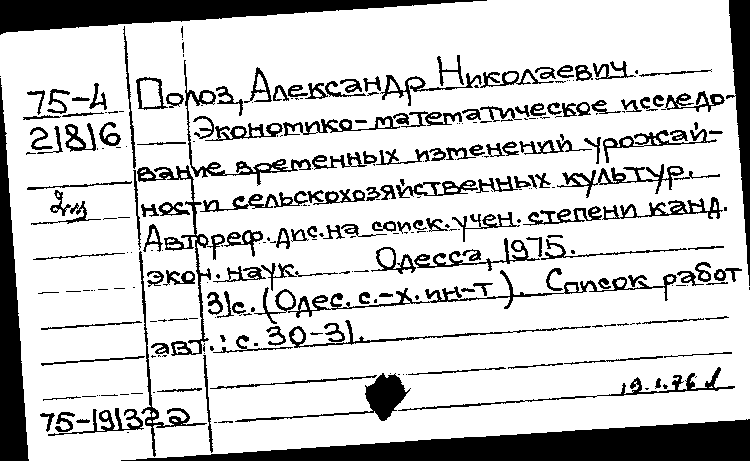 75-4 Полоз, Александр Николаевич.
21816 Экономико-математическое исследо-
вание временных изменений урожай-
ности сельскохозяйственных культур.
Автореф. дис. на соиск. учен. степени канд.
экон. наук. Одесса, 1975.
31с. (Одес. с.-х. ин-т). Список работ
авт.: с. 30-31.
19.1.76
75-19132